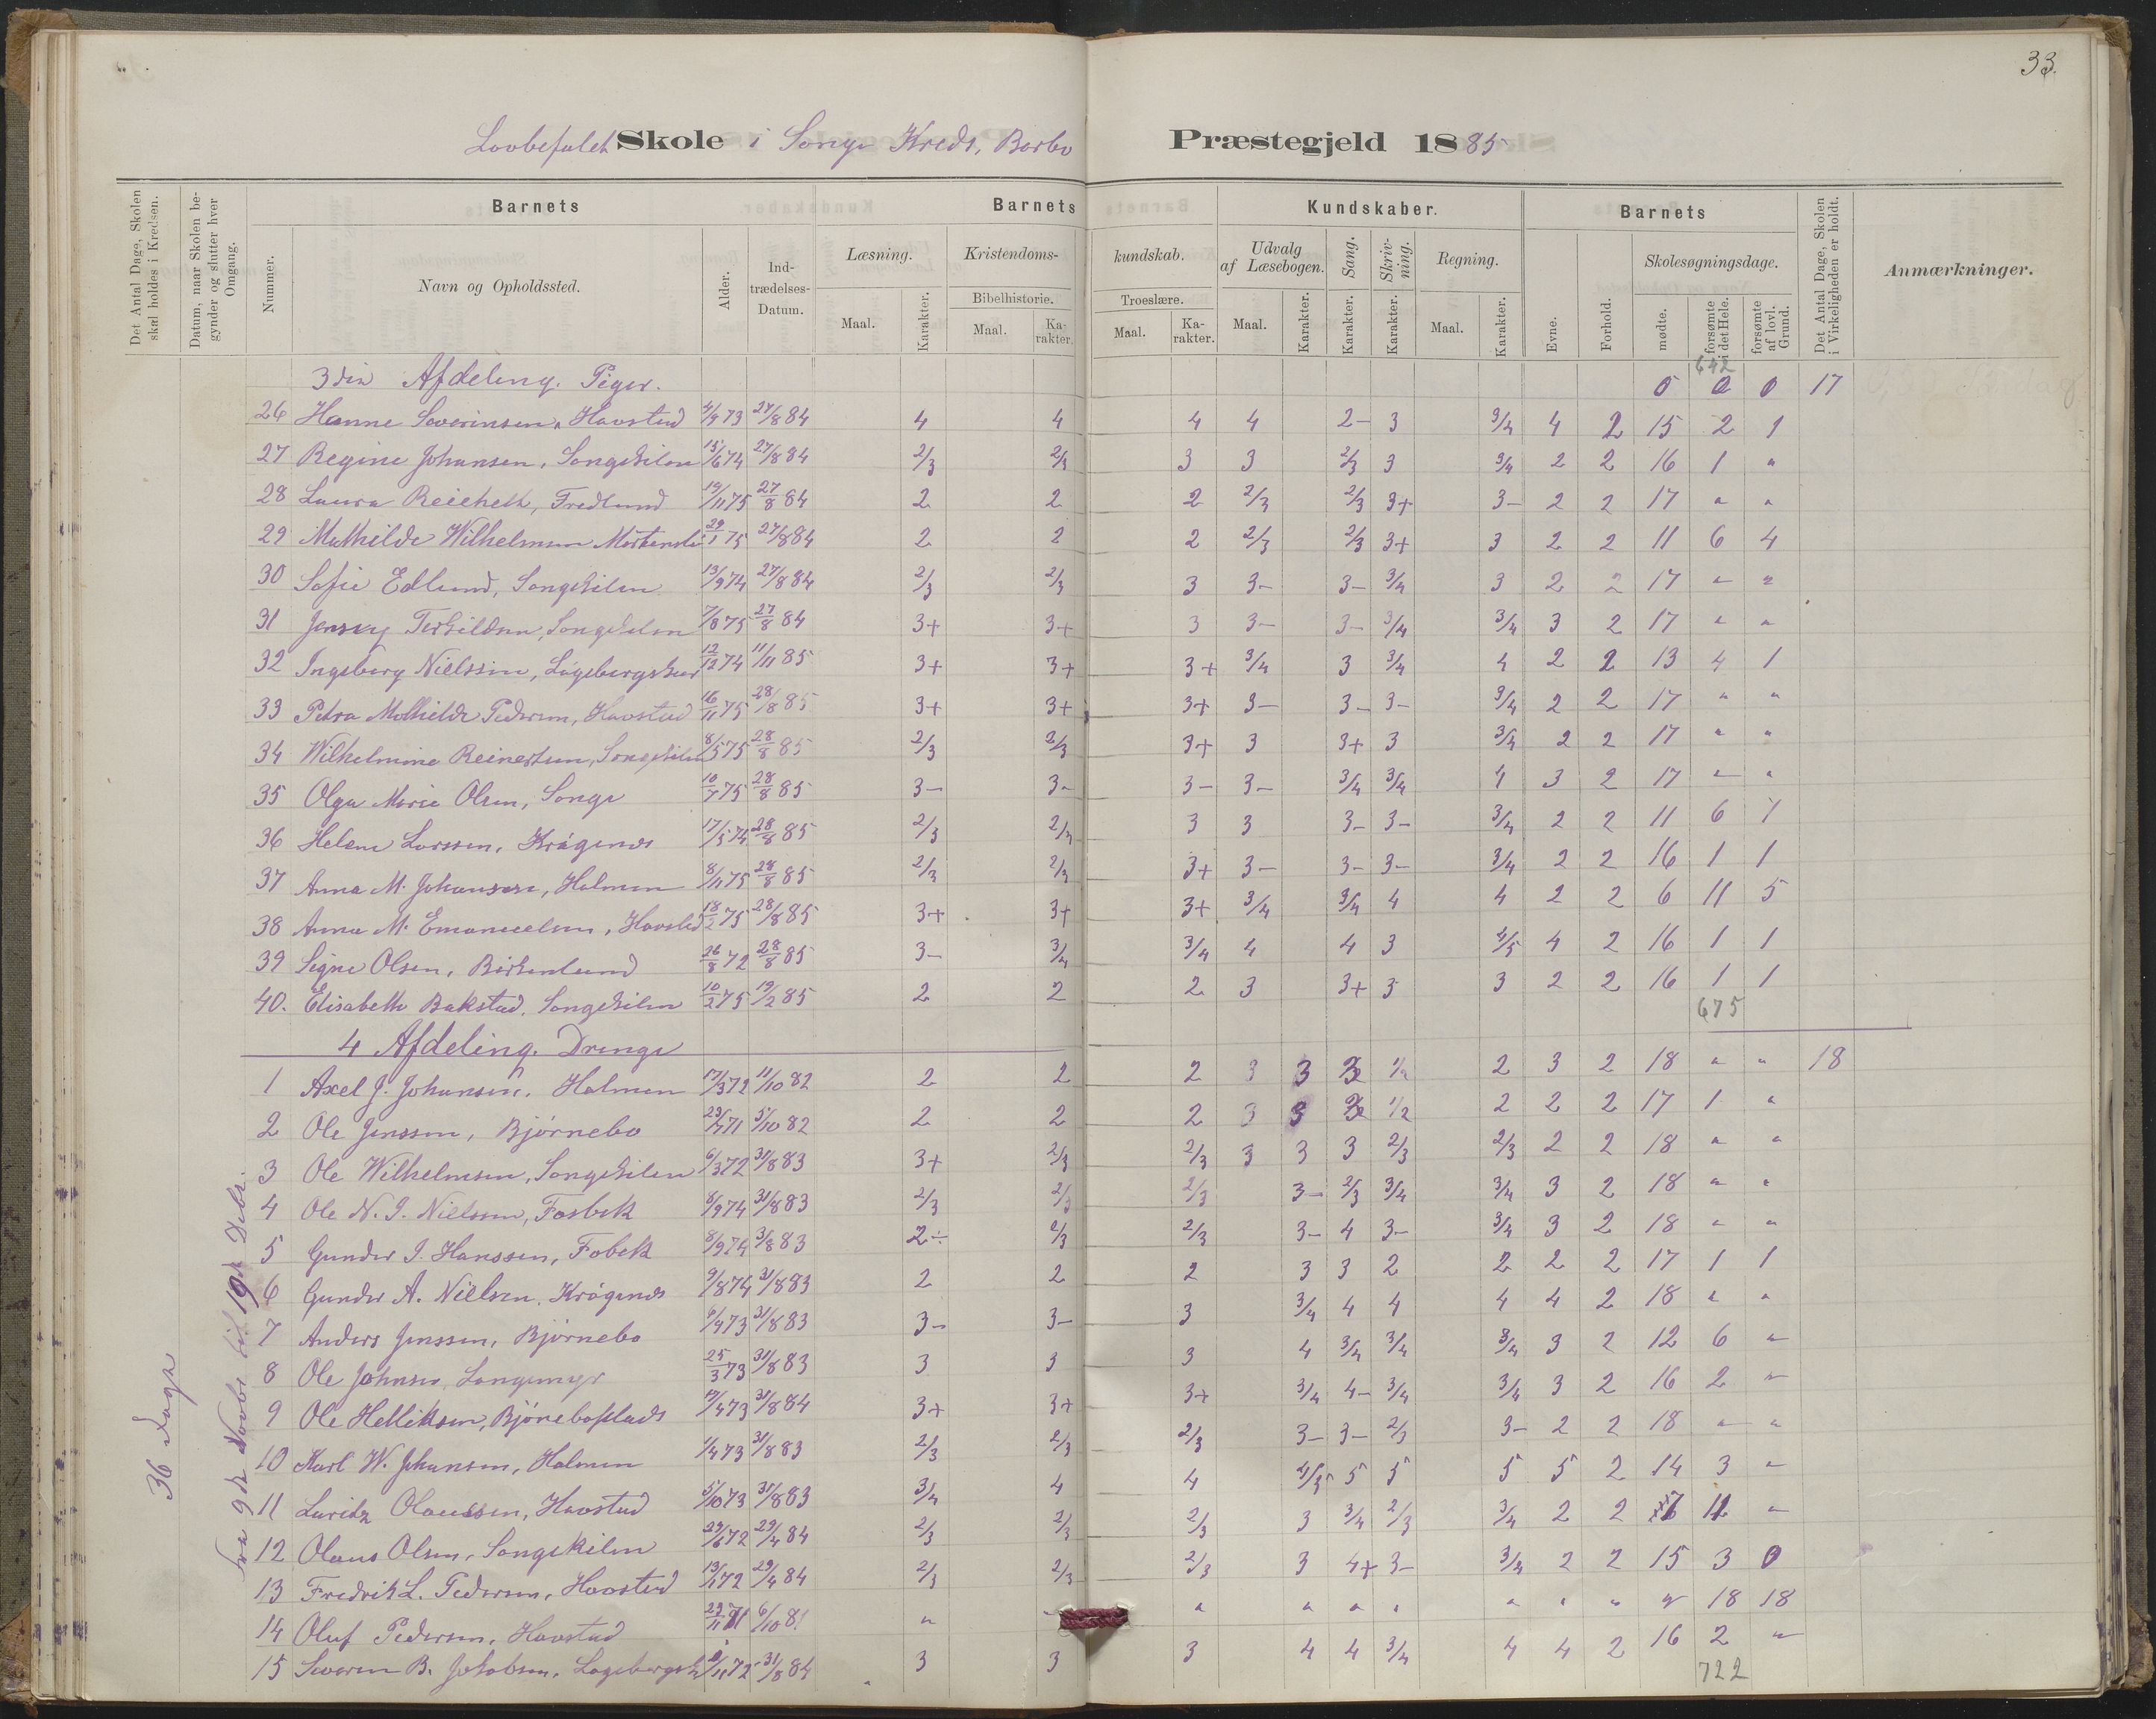 33.
Lovbefalet Skole i Songe Kreds, Barbo Præstegjeld 1885
Det Antal Dage, Skolen skal holdes i Kredsen.
Datum, naar Skolen begynder og slutter hver Omgang.
Barnets
Nummer.
Navn og Opholdssted.
Alder.
Indtrædelses-Datum.
Barnets Kundskaber.
Læsning.
Maal.
Karakter.
Kristendomskundskab.
Bibelhistorie.
Maal.
Karakter.
Troeslære.
Maal.
Karakter.
Udvalg af Læsebogen.
Maal.
Karakter.
Sang.
Karakter.
Skrivning.
Karakter.
Regning.
Maal.
Karakter.
Barnets
Evne.
Forhold.
Skolesøgningsdage.
mødte.
forsømte i det Hele.
forsømte af lovl. Grund.
Det Antal Dage, Skolen i Virkeligheden er holdt.
Anmærkninger.
642
3die Afdeling. Piger. 0 0 0 17
26 Hanne Soverinsen, Havstad 4/9 73 27/8 84 4 4 4 4 2- 3 3/4 4 2 15 2 1
27 Regine Johansen, Songekilen 15/6 74 27/8 84 2/3 2/3 3 3 2/3 3 3/4 2 2 16 1 "
28 Laura Reichelt, Fredlund 19/11 75 27/8 84 2 2 2 2/3 2/3 3+ 3- 2 2 17 " "
29 Mathilde Wilhelmsen 29/1 75 27/8 84 2 2 2 2/3 2/3 3+ 3 2 2 11 6 4
30 Sofie Edlund, Songekilen 13/9 74 27/8 84 2/3 2/3 3 3- 3- 3/4 3 2 2 17 " "
31 Jensey Terkildsen, Songekilen 7/8 75 27/8 84 3+ 3+ 3 3- 3- 3/4 3/4 3 2 17 " "
32 Ingeborg Nielssen, 12/12 74 11/11 85 3+ 3+ 3+ 3/4 3 3/4 4 2 2 13 4 1
33 Petra Mathilde Pedersen, Havstad 16/11 75 28/8 85 3+ 3+ 3+ 3- 3- 3- 3/4 2 2 17 " "
34 Wilhelmine Reinertsen, Songekilen 8/5 75 28/8 85 2/3 2/3 3+ 3 3+ 3 3/4 2 2 17 " "
35 Olga Marie Olsen, Songe 10/7 75 28/8 85 3- 3- 3- 3- 3/4 3/4 4 3 2 17 " "
36 Helene Larssen, Krågenes 17/5 74 28/8 85 2/3 2/3 3 3 3- 3- 3/4 2 2 11 6 1
37 Anna M. Johansen, Holmen 8/11 75 28/8 85 2/3 2/3 3+ 3- 3- 3- 3/4 2 2 16 1 1
38 Anna M. Emanuelsen, Havsted 18/2 75 28/8 85 3+ 3+ 3+ 3/4 3/4 4 4 2 2 6 11 5
39 Signe Olsen, Birkenlund 26/8 72 28/8 85 3- 3/4 3/4 4 4 3 4/5 4 2 16 1 1
40. Elisabeth Bakstad, Songekilen 10/2 75 19/2 85 2 2 2 3 3+ 3 3 2 2 16 1 1
675
4 Afdeling. Drenge
1 Axel J. Johansen, Holmen 17/3 72 11/10 82 2 2 2 3 3 3 1/2 2 3 2 18 " " 18
2 Ole Jenssen, Bjørnebo 23/7 71 5/10 82 2 2 2 3 3 3 1/2 2 2 2 17 1 "
3 Ole Wilhelmsen, Songekilen 6/3 72 31/8 83 3+ 2/3 2/3 3 3 3 2/3 2/3 2 2 18 " "
4 Ole N. I. Nielssen, Fosbek 8/9 74 31/8 83 2/3 2/3 2/3 3- 2/3 3/4 3/4 3 2 18 " "
5 Gunder I. Hanssen, Fobek 8/9 74 31/8 83 2÷ 2/3 2/3 3- 4 3- 3/4 3 2 18 " "
6 Gunder A. Nielsen, Krågenes 9/8 74 31/8 83 2 2 2 3 3 2 2 2 2 17 1 1
7 Anders Jenssen, Bjørnebo 6/4 73 31/8 83 3- 3- 3 3/4 4 4 4 4 2 18 " "
8 Ole Johnsen, Langemyr 25/3 73 31/8 83 3 3 3 4 3/4 3/4 3/4 3 2 12 6 "
9 Ole Helliksen, 17/4 73 31/8 84 3+ 3+ 3+ 3/4 4- 3/4 3/4 3 2 16 2 "
10 Karl W. Johansen, Holmen 1/4 73 31/8 83 2/3 2/3 2/3 3- 3- 2/3 3- 2 2 18 " "
11 Lauritz Olaussen, Havstad 5/10 73 31/8 83 3/4 4 4 4/5 5 5 5 5 2 14 3 "
12 Olaus Olsen, Songekilen 27/6 72 29/4 84 2/3 2/3 2/3 3 3/4 2/3 3/4 2 2 7 11 "
13 Fredrik L. Pedersen, Havsted 13/1 72 29/4 84 2/3 2/3 2/3 3 4+ 3- 3/4 2 2 15 3 0
14 Oluf Pedersen, Havstad 22/11 71 6/10 81 " " " " " " " " " " 18 18
15 Severin B. Jakobsen, 72 31/8 84 3 3 3 4 4 3/4 4 4 2 16 2 "
722
36 Dage
fra 9de Novbr til 19de Debr.